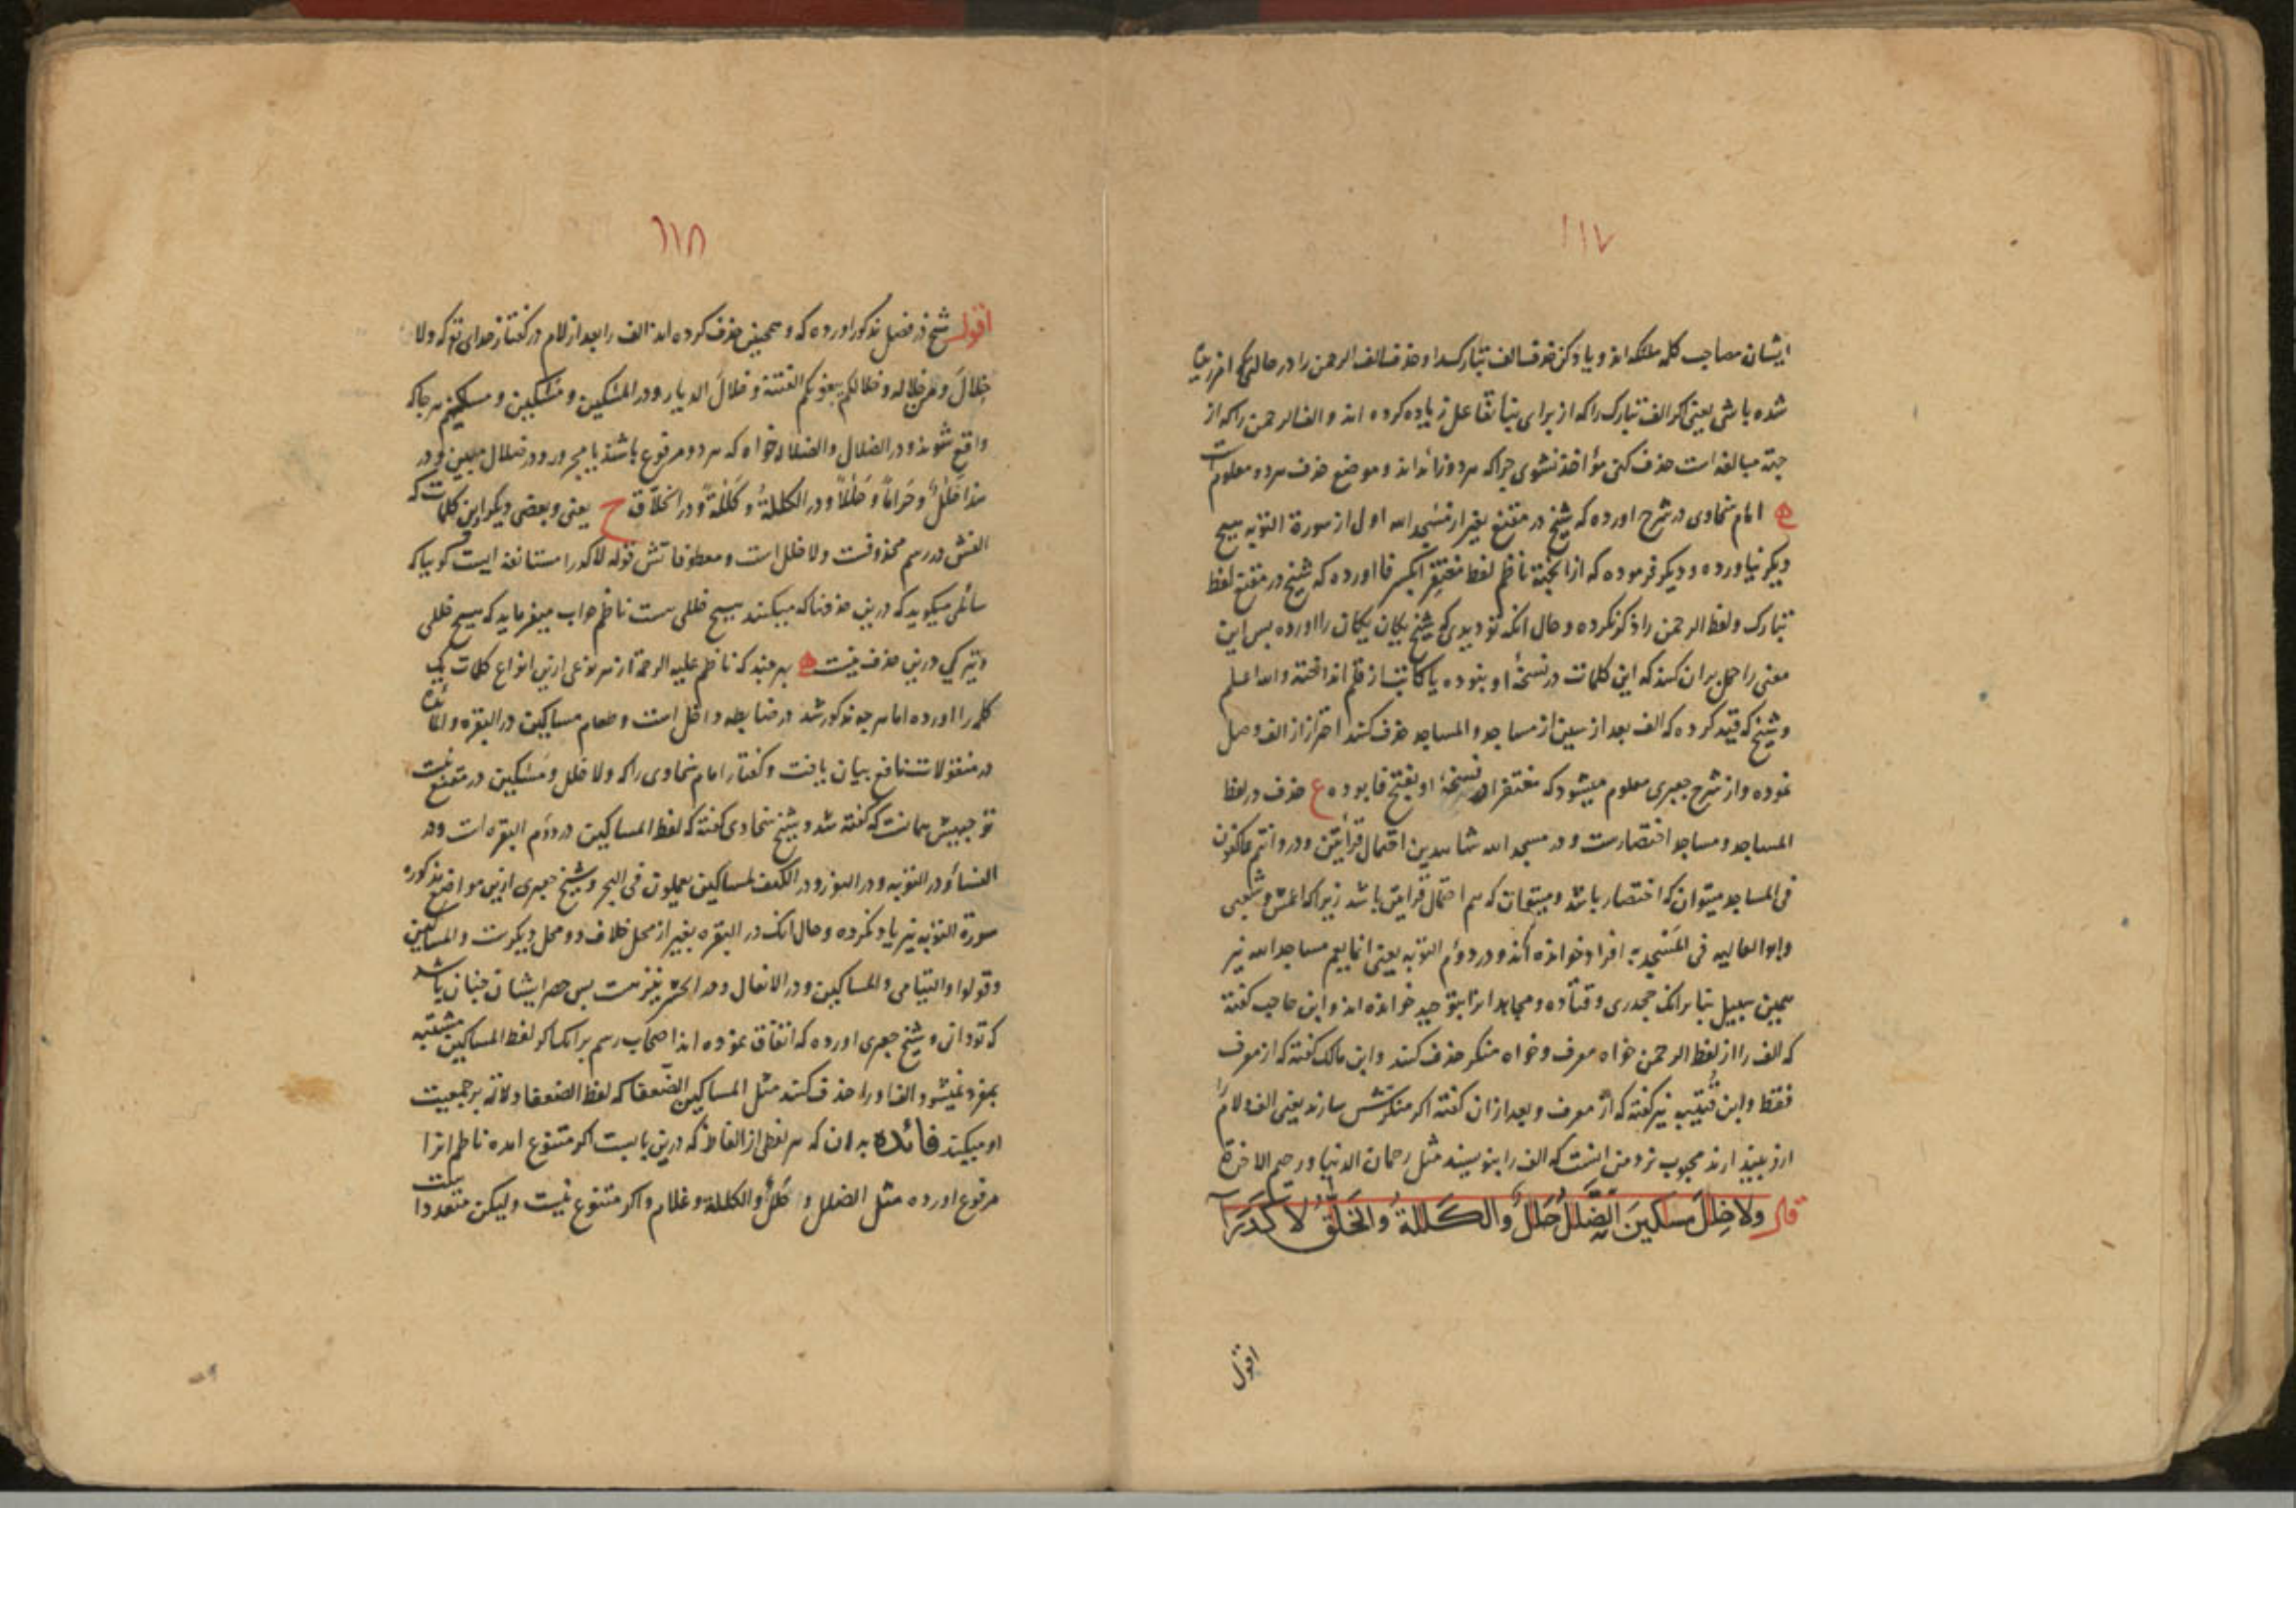 ١١٧
ایشان مصاحب کلمه ملئکه اند و یاد کن حذف الف تبارک را و حذف الف الرحمن را در حالتی که
شده باشی یعنی اگر الف تبارک را که از برای بنا تفاعل زیاده کرده اند و الف الرحمن را که از
جهة مبالغه است حذف کنی مؤاخذ نشوی چرا که هر دو زائد اند و موضع حذف هر دو معلوم است
امام سخاوی در شرح اورده که شیخ در مقنع بغیر از مسجد الله اول از سورة التوبه هیچ
دیگر نیاورده و دیگر فرموده که ازانجهة ناظم لفظ مغتفر بکسر فا اورده که شیخ در مقنع لفظ
تبارک و لفظ الرحمن را ذکر نکرده و حال انکه تو دیدی که شیخ یکان یکان را اورده پس این
معنی را حمل بران کنند که این کلمات در نسخهٔ او نبوده یا کاتب از قلم انداخته و الله اعلم
و شیخ که قید کرده که الف بعد از سین از مساجد و المساجد حذف کنند احتراز از الف وصل
نموده و از شرح جعبری معلوم میشود که مغتفرا در نسخهٔ او بفتح فا بوده ع حذف در لفظ
المساجد و مساجد اختصارست و در مسجد الله شاهدین احتمال قرأتین و در وانتم عاکفون
فی المساجد میتوان که اختصار باشد و میتوان که هم احتمال قرایتین باشد زیرا که اعمش و شعبی
و ابو العالیه فی المسجد به افراد خوانده اند و در دوم التوبه یعنی انما یعمر مساجد الله نیز
همین سبیل بنا برانک جحدری و قتاده و مجاهد انرا بتوحید خوانده اند و ابن حاجب کفته
که الف را از لفظ الرحمن خواه معرف و خواه منکر حذف کنند و ابن مالک کفته که از معرف
فقط و ابن قتیبه نیز کفته که از معرف و بعد ازان کفته اکر منکرش سازند یعنی الف و لام
ازو بیندازند محبوب نزد من انست که الف را بنویسند مثل رحمان الدنیا و رحیم الاخرة
قال ولا خِلٰلَ مسٰکینَ الضَّلٰلُ حَلٰلُ والکَلٰلةُ والخَلّٰقُ لا کَدَرَا
اقول
١١٨
اقول شیخ در فصل مذکور اورده که و همچنین حذف کرده اند الف را بعد از لام در کفتار خدای تع که ولا
خِلالَ و من خلاله و خلالکم یبغونکم الفتنة و خلالَ الدیار و در المسٰکین و مسٰکین و مسکینهم هرجا که
واقع شوند و در الضلال والضلالة خواه که هر دو مرفوع باشند یا مجرور و در ضلال مبین و در
هذا حَلٰلٌ و حَراماً و حَلٰلاً و در الکللةُ و کَلٰلةً و در الخَلّاق ح یعنی و بعضی دیگر ازین کلمات که
الفش در رسم محذوفست ولا خلل است و معطوفاتش قوله لا کدرا مستانفه ایست گوییا که
سائلی میکوید که درین حذفها که میکنند هیچ خللی هست ناظم جواب میفرماید که هیچ خللی
و تیرکی درین حذف نیست هرچند که ناظم علیه الرحمة از هر نوعی ازین انواع کلمات یک
کلمه را اورده اما هرچه مذکور شد در ضابطه داخل است و طعام مساکین در البقره و المائده
در منقولات نافع بیان یافت و کفتار امام سخاوی را که ولا خلل و مسٰکین در مقنع نیست
توجیهش همانست که کفته شد و شیخ سخاوی کفته که لفظ المساکین در دوم البقره است و در
النساء و در التوبه و در النور و در الکهف لمساکین یعملون فی البحر و شیخ جعبری ازین مواضع مذکوره
سورة التوبه نیز یاد نکرده و حال انک در البقره بغیر از محل خلاف دو محل دیکرست والمساکین
وقولوا والیتامی والمساکین و در الانفال و در الحشر نیز هست پس حصر ایشان چنان باشد
که تو دانی و شیخ جعبری اورده که اتفاق نموده اند اصحاب رسم برانک اکر لفظ المساکین مشتبه
بمفرد نمیشود الف او را حذف کنند مثل المساکین الضعفا که لفظ الضعفا دلالة بر جمعیت
او میکند فائده بدان که هر لفظی از الفاظ که درین بابست اکر متنوع امده ناظم انرا
مرفوع اورده مثل الضلل و حَلٰلٌ والکللة و غلام و اکر متنوع نیست ولیکن متعدد است